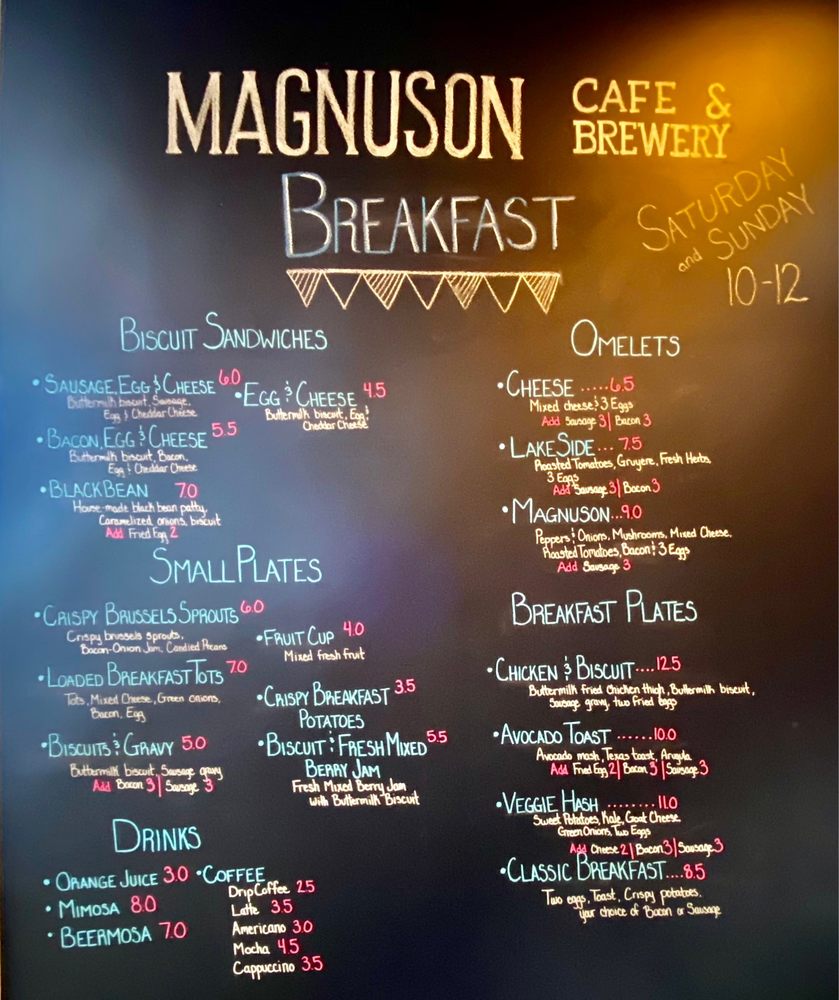 MAGNUSON CAFE &
BREWERY
BREAKFAST
SATURDAY
and SUNDAY
10-12
BISCUIT SANDWICHES
• SAUSAGE, EGG & CHEESE 6.0
Buttermilk biscuit, Sausage,
Egg & Cheddar Cheese
• EGG & CHEESE 4.5
Buttermilk biscuit, Egg &
Cheddar Cheese
• BACON, EGG & CHEESE 5.5
Buttermilk biscuit, Bacon,
Egg & Cheddar Cheese
• BLACK BEAN 7.0
House-made black bean patty,
Caramelized onions, biscuit
Add Fried Egg 2
SMALL PLATES
• CRISPY BRUSSELS SPROUTS 6.0
Crispy brussels sprouts,
Bacon-Onion Jam, Candied Pecans
• LOADED BREAKFAST TOTS 7.0
Tots, Mixed Cheese, Green onions,
Bacon, Egg
• BISCUITS & GRAVY 5.0
Buttermilk biscuit, Sausage gravy
Add Bacon 3 | Sausage 3
• FRUIT CUP 4.0
Mixed fresh fruit
• CRISPY BREAKFAST 3.5
POTATOES
• BISCUIT & FRESH MIXED 5.5
BERRY JAM
Fresh Mixed Berry Jam
with Buttermilk Biscuit
DRINKS
• ORANGE JUICE 3.0
• MIMOSA 8.0
• BEERMOSA 7.0
• COFFEE
Drip Coffee 2.5
Latte 3.5
Americano 3.0
Mocha 4.5
Cappuccino 3.5
OMELETS
• CHEESE .....6.5
Mixed cheese & 3 Eggs
Add Sausage 3 | Bacon 3
• LAKESIDE... 7.5
Roasted Tomatoes, Gruyere, Fresh Herbs,
3 Eggs
Add Sausage 3 | Bacon 3
• MAGNUSON...9.0
Peppers & Onions, Mushrooms, Mixed Cheese,
Roasted Tomatoes, Bacon & 3 Eggs
Add Sausage 3
BREAKFAST PLATES
• CHICKEN & BISCUIT....12.5
Buttermilk fried chicken thigh, Buttermilk biscuit,
Sausage gravy, two fried eggs
• AVOCADO TOAST ......10.0
Avocado mash, Texas toast, Arugula
Add Fried Egg 2 | Bacon 3 | Sausage 3
• VEGGIE HASH ........11.0
Sweet Potatoes, Kale, Goat Cheese
Green Onions, Two Eggs
Add Cheese 2 | Bacon 3 | Sausage 3
• CLASSIC BREAKFAST....8.5
Two eggs, Toast, Crispy potatoes.
your choice of Bacon or Sausage